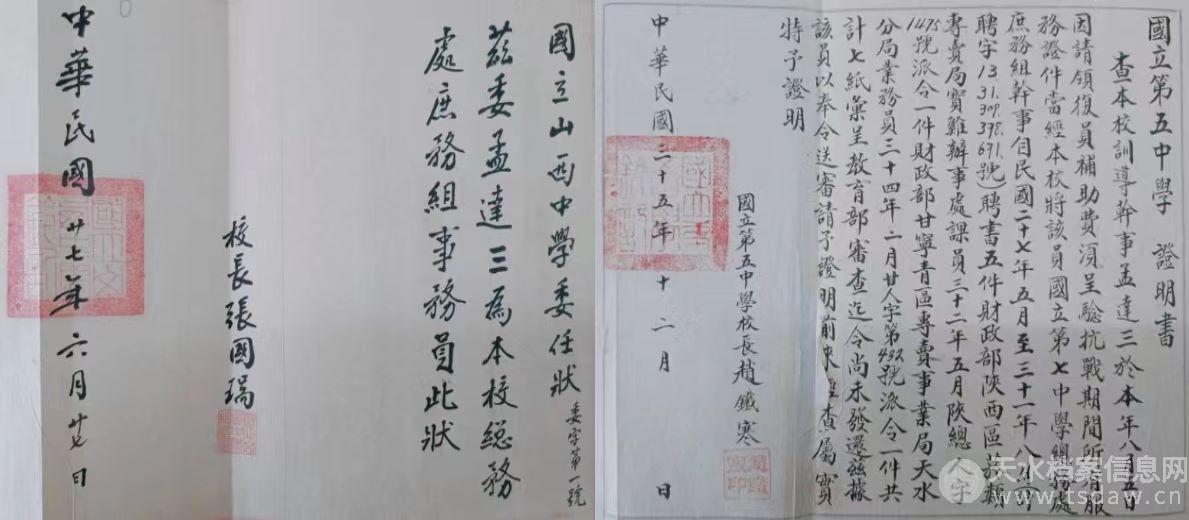 國立山西中學委任狀 委字第一號
茲委孟達三為本校總務
處庶務組事務員此狀
校長張國瑞
中華民國廿七年六月廿七日
國立第五中學 證明書
查本校訓導幹事孟達三於本年八月五日
因請領復員補助費須呈驗抗戰期間所有服
務證件當經本校將該員國立第七中學總務處
庶務組幹事自民國二十七年五月至三十一年八月(
聘字13.31.309.378.671.號)聘書五件財政部陝西區菸類
專賣局寶雞辦事處課員三十二年五月陝總人字
1475號派令一件財政部甘寧青區專賣事業局天水
分局業務員三十四年二月廿人字第432號派令一件共
計七紙彙呈教育部審查迄今尚未發還茲據
該員以奉令送審請予證明前來經查屬實
特予證明
國立第五中學校長趙鐵寒
中華民國三十五年十二月 日
天水档案信息网
www.tsdaw.cn